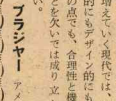 増えていく現代では、
的にもデザイン的にも
の点でも、合理性と機
とを欠いては成り立
い。
ブラジャー アメ